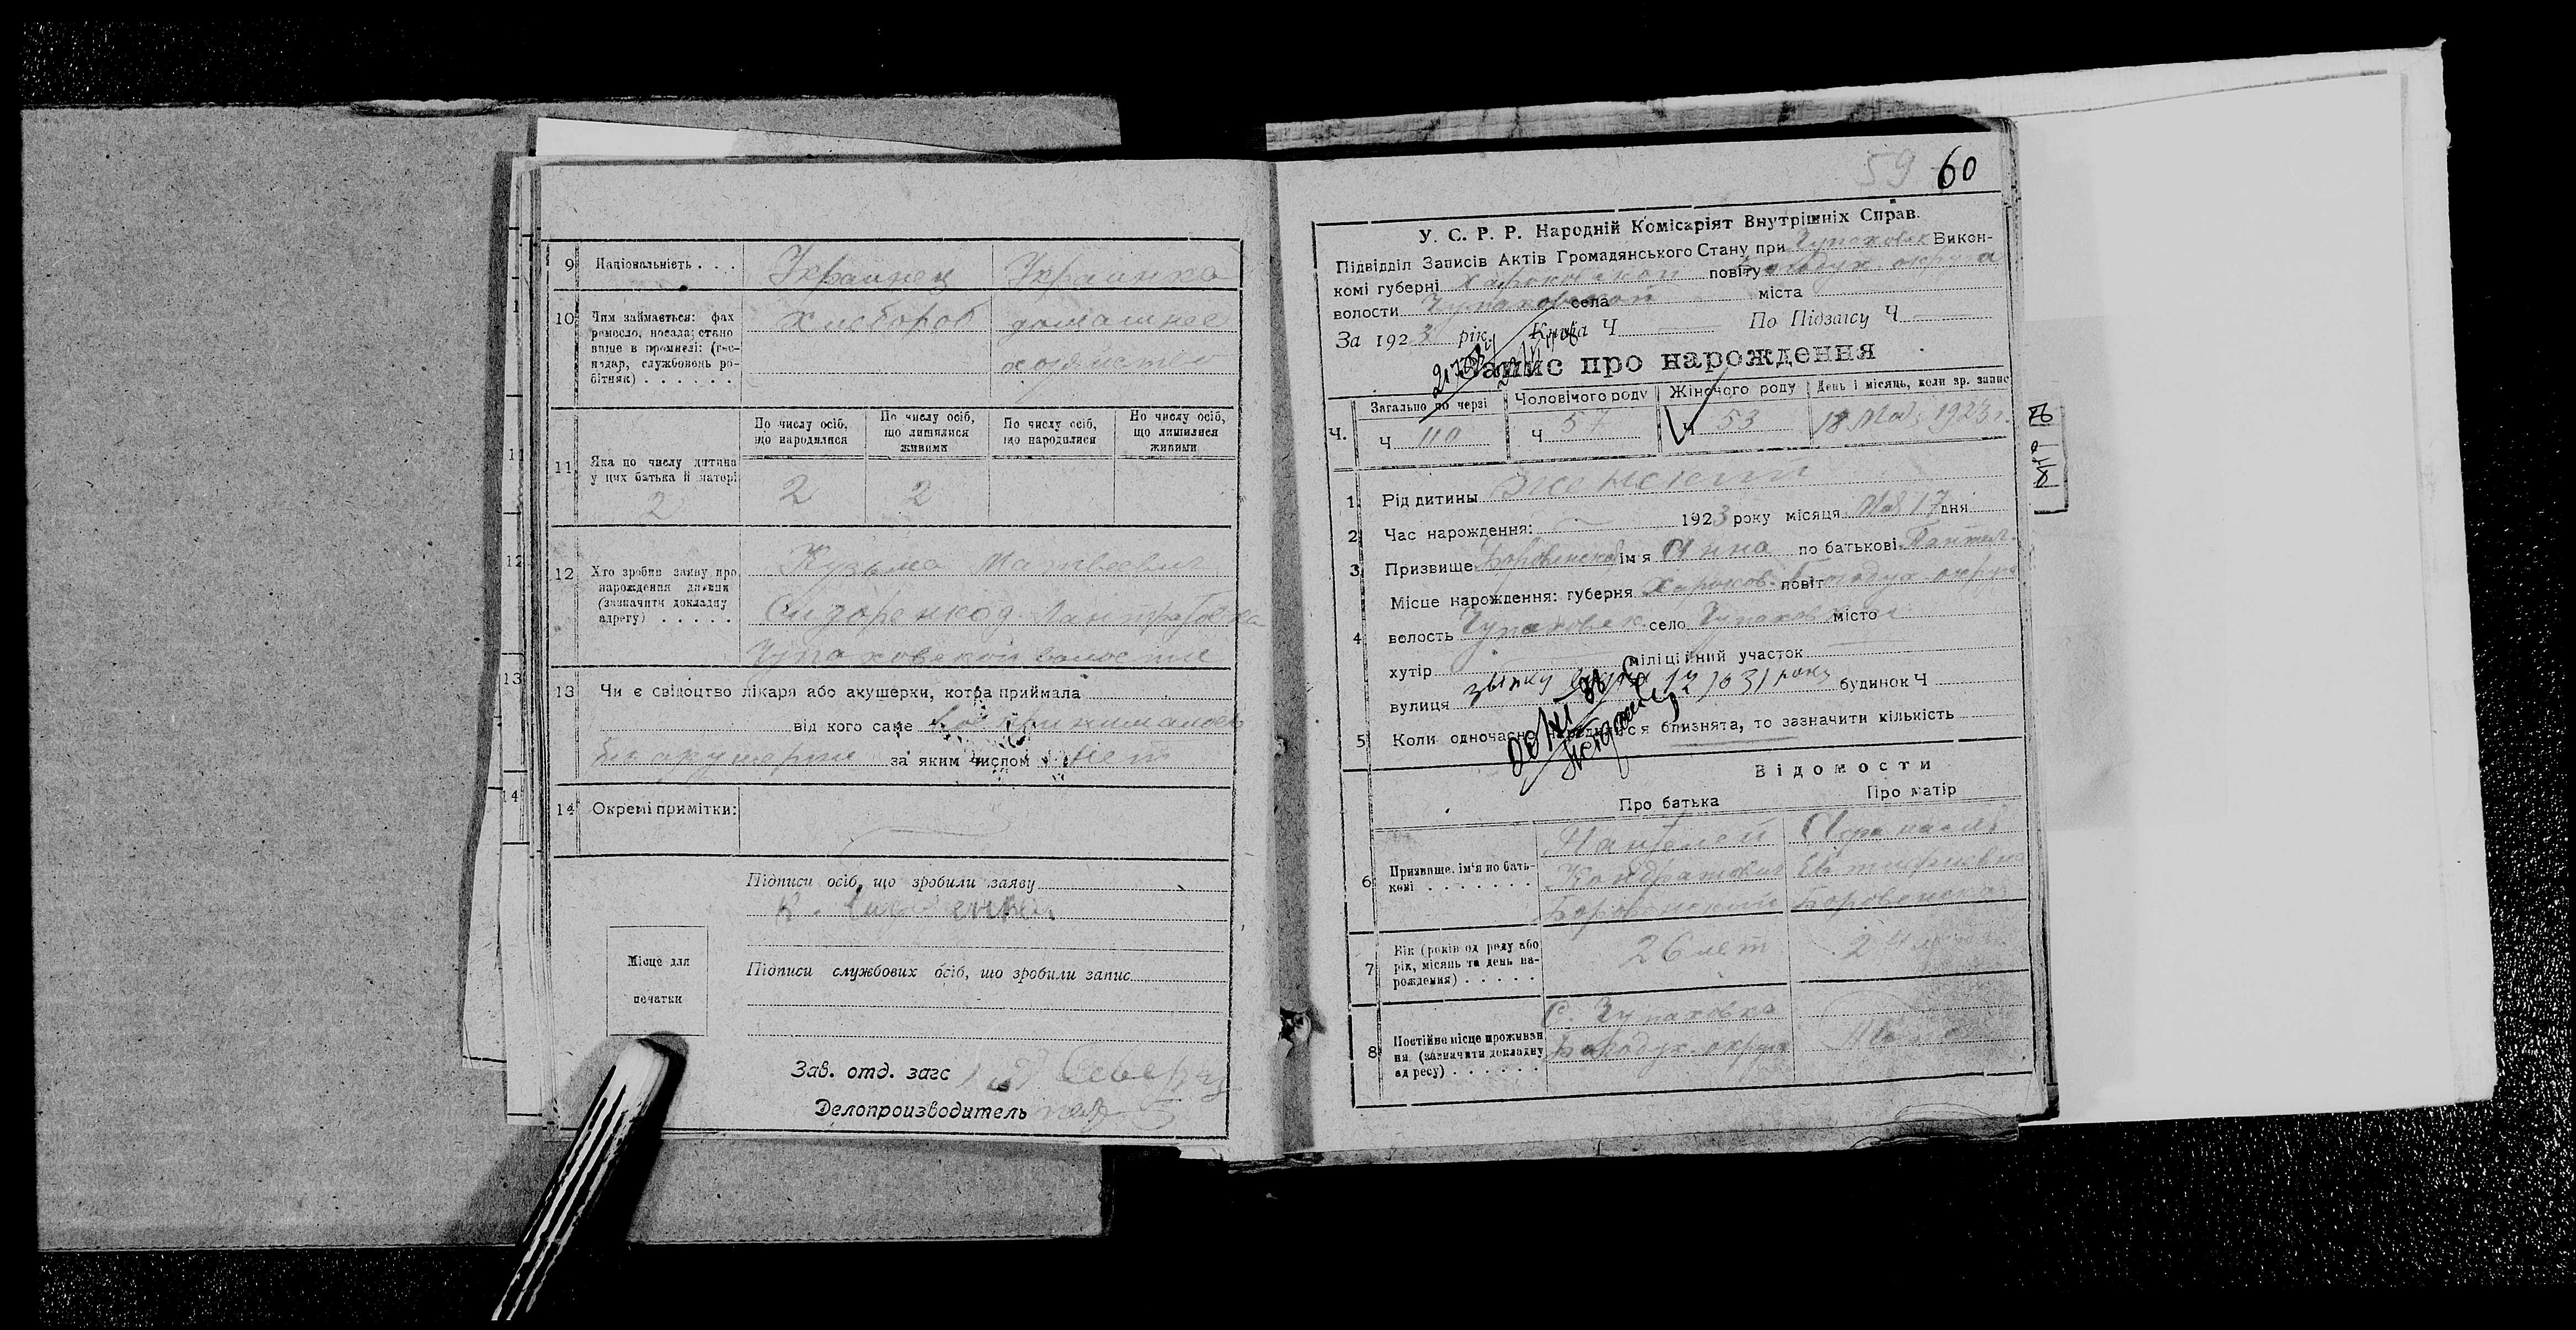 9 Національність . . . Украинец Украинка
10 Чим займається: фах хлебороб домашнее
ремесло, посада; стано хозяйство
вище в промислі: (гос-
подар, службовець ро-
бітник) . . . . . .
По числу осіб, що народилися
По числу осіб, що лишилися живими
По числу осіб, що народилися
По числу осіб, що лишилися живими
11 Яка по числу дитина
у цих батька й матері
2 2 2
12 Хто зробив заяву про
нарождення дитини
(зазначити докладну
адресу) . . . . .
Кузьма Матвеевич
Сидоренко д.
Чупаховской волости
13 Чи є свідоцтво лікаря або акушерки, котра приймала
від кого саме
за яким числом нет
14 Окремі примітки:
Підписи осіб, що зробили заяву
К. Сидоренко
Місце для
печатки
Підписи службових осіб, що зробили запис
Зав. отд. загс
Делопроизводитель
59 60
У. С. Р. Р. Народній Комісаріят Внутрішніх Справ.
Підвідділ Записів Актів Громадянського Стану при Чупаховск Викон-
комі губерні Харьковской повіту Богодух. округа
волости Чупаховской села міста
За 1923 рік. Книга Ч По Підзагсу Ч
Запис про нарождення
Загально по черзі Чоловічого роду Жіночого роду День і місяць, коли зр. запис
Ч. Ч 110 Ч 57 Ч 53 18 Мая 1923 г.
1 Рід дитины Женский
2 Час нарождення: 1923 року місяця Мая 17 дня
3 Призвище Боровенская ім'я Анна по батькові Пантел.
Місце нарождення: губерня Харьков. повіт Богодух. округа
4 волость Чупаховск. село Чупаховка місто
хутір міліційний участок
вулиця будинок Ч
5 Коли одночасно народилися близнята, то зазначити кількість
Відомости
Про батька Про матір
6 Призвище, ім'я по бать-
кові . . . . . . .
Пантелей
Кондратович
Боровенский Боровенская
7 Вік (років од роду або
рік, місяць та день на-
рождення) . . . . .
26 лет
8 Постійне місце проживан
ня (зазначити докладну
адресу) . . . . . .
С. Чупаховка
Богодух. округа